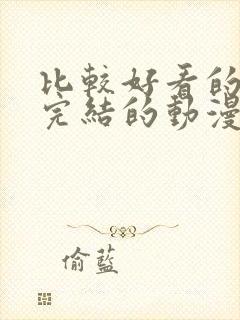 比較好看的
完結的動漫
偷藍